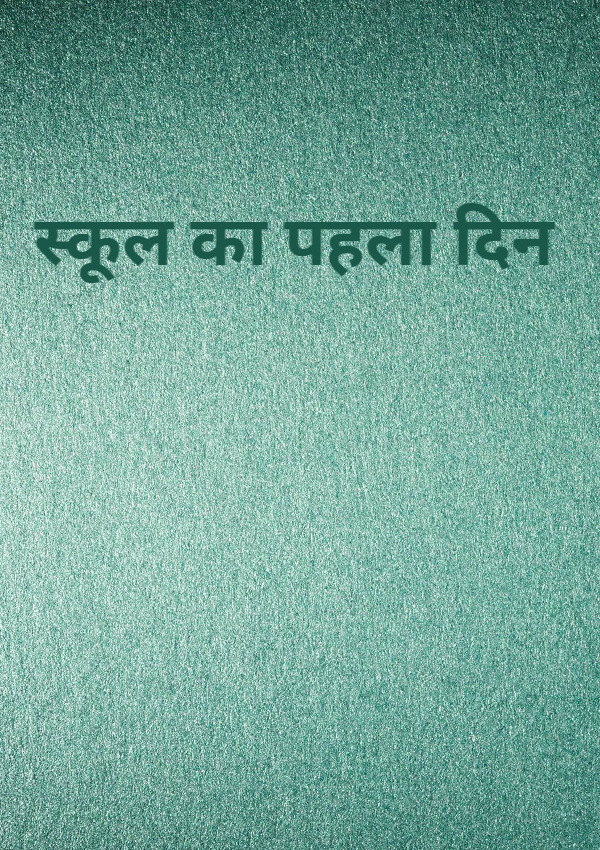 स्कूल का पहला दिन